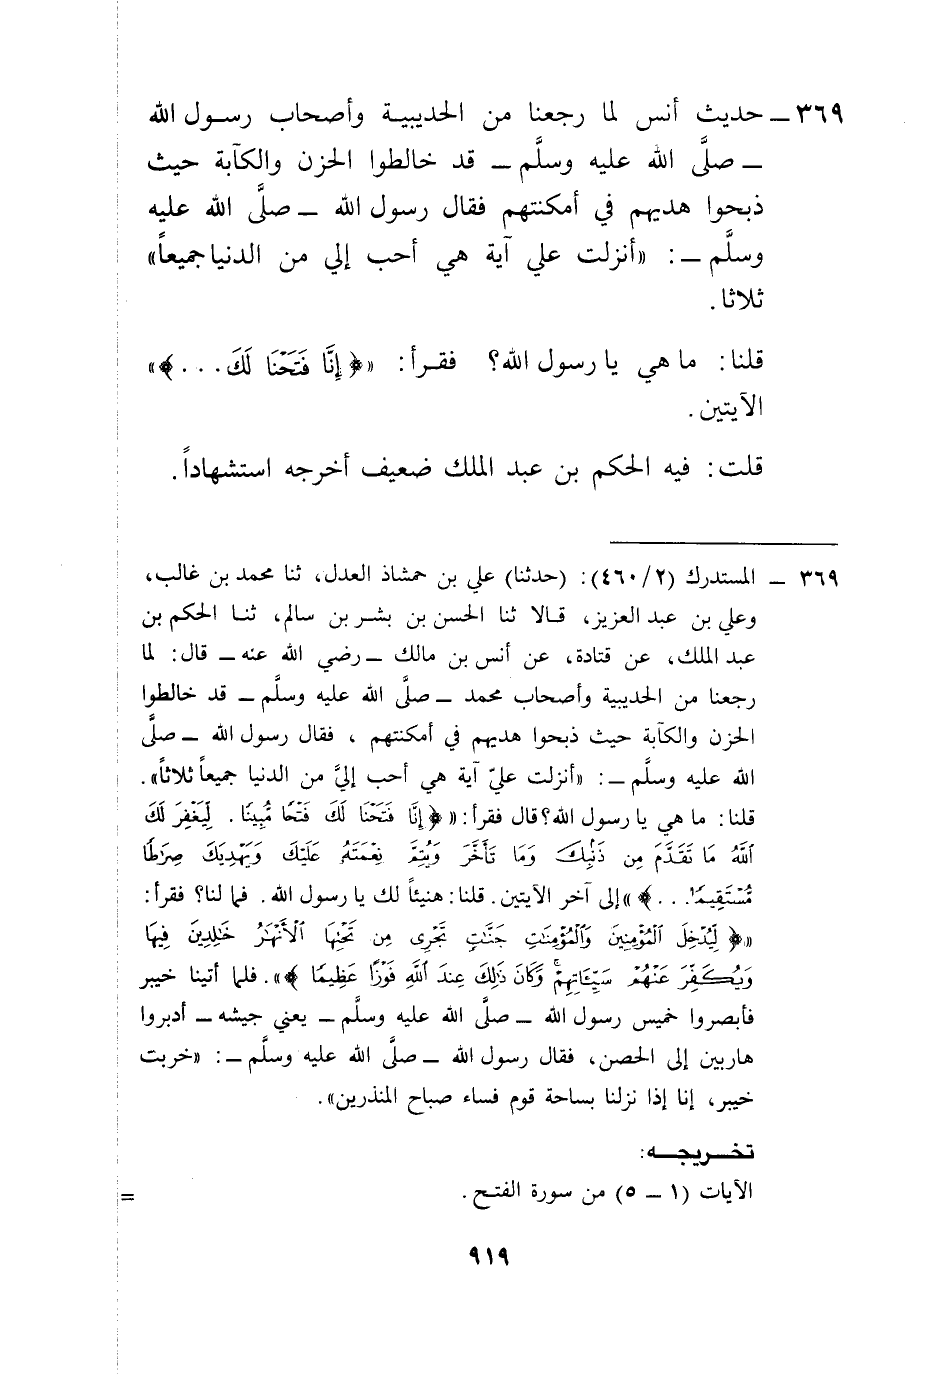 ٣٦٩ـ حديث أنس لما رجعنا من الحديبية وأصحاب رسول الله
ـ صلَّى الله عليه وسلَّم ـ قد خالطوا الحزن والكآبة حيث
ذبحوا هديهم في أمكنتهم فقال رسول الله ـ صلَّى الله عليه
وسلَّم ـ: «أنزلت علي آية هي أحب إلي من الدنيا جميعاً»
ثلاثا.
قلنا: ما هي يا رسول الله؟ فقرأ: «﴿إِنَّا فَتَحْنَا لَكَ...﴾»
الآيتين.
قلت: فيه الحكم بن عبد الملك ضعيف أخرجه استشهاداً.
٣٦٩ ـ المستدرك (٤٦٠/٢): (حدثنا) علي بن حمشاذ العدل، ثنا محمد بن غالب،
وعلي بن عبد العزيز، قالا ثنا الحسن بن بشر بن سالم، ثنا الحكم بن
عبد الملك، عن قتادة، عن أنس بن مالك ـ رضي الله عنه ـ قال: لما
رجعنا من الحديبية وأصحاب محمد ـ صلَّى الله عليه وسلَّم ـ قد خالطوا
الحزن والكآبة حيث ذبحوا هديهم في أمكنتهم، فقال رسول الله ـ صلَّى
الله عليه وسلَّم ـ: «أنزلت عليّ آية هي أحب إليَّ من الدنيا جميعاً ثلاثاً».
قلنا: ما هي يا رسول الله؟ قال فقرأ: «﴿إِنَّا فَتَحْنَا لَكَ فَتْحًا مُّبِينًا. لِّيَغْفِرَ لَكَ
ٱللَّهُ مَا تَقَدَّمَ مِن ذَنۢبِكَ وَمَا تَأَخَّرَ وَيُتِمَّ نِعْمَتَهُۥ عَلَيْكَ وَيَهْدِيَكَ صِرَٰطًا
مُّسْتَقِيمًا...﴾» إلى آخر الآيتين. قلنا: هنيئاً لك يا رسول الله. فما لنا؟ فقرأ:
«﴿لِّيُدْخِلَ ٱلْمُؤْمِنِينَ وَٱلْمُؤْمِنَٰتِ جَنَّٰتٍ تَجْرِى مِن تَحْتِهَا ٱلْأَنْهَٰرُ خَٰلِدِينَ فِيهَا
وَيُكَفِّرَ عَنْهُمْ سَيِّـَٔاتِهِمْ ۚ وَكَانَ ذَٰلِكَ عِندَ ٱللَّهِ فَوْزًا عَظِيمًا﴾». فلما أتينا خيبر
فأبصروا خميس رسول الله ـ صلَّى الله عليه وسلَّم ـ يعني جيشه ـ أدبروا
هاربين إلى الحصن، فقال رسول الله ـ صلَّى الله عليه وسلَّم ـ: «خربت
خيبر، إنا إذا نزلنا بساحة قوم فساء صباح المنذرين».
تخريجه:
الآيات (١ ـ ٥) من سورة الفتح. =
٩١٩